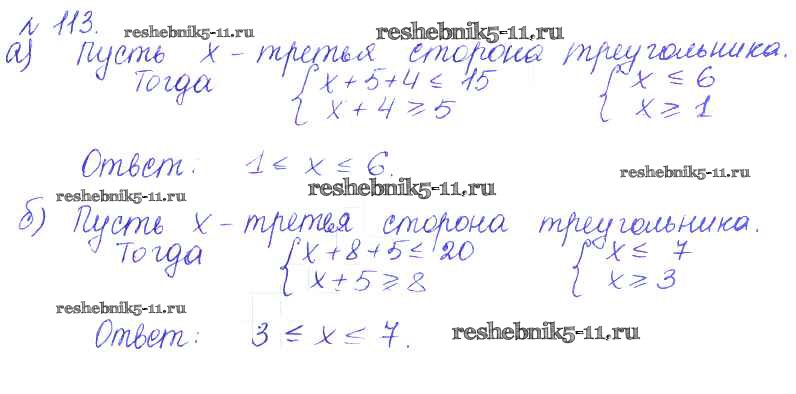 № 113. reshebnik5-11.ru reshebnik5-11.ru
а) Пусть x – третья сторона треугольника.
Тогда { x + 5 + 4 ≤ 15 { x ≤ 6
x + 4 ≥ 5 x ≥ 1
Ответ: 1 ≤ x ≤ 6.
reshebnik5-11.ru reshebnik5-11.ru reshebnik5-11.ru
б) Пусть x – третья сторона треугольника.
Тогда { x + 8 + 5 ≤ 20 { x ≤ 7
x + 5 ≥ 8 x ≥ 3
reshebnik5-11.ru
Ответ: 3 ≤ x ≤ 7. reshebnik5-11.ru